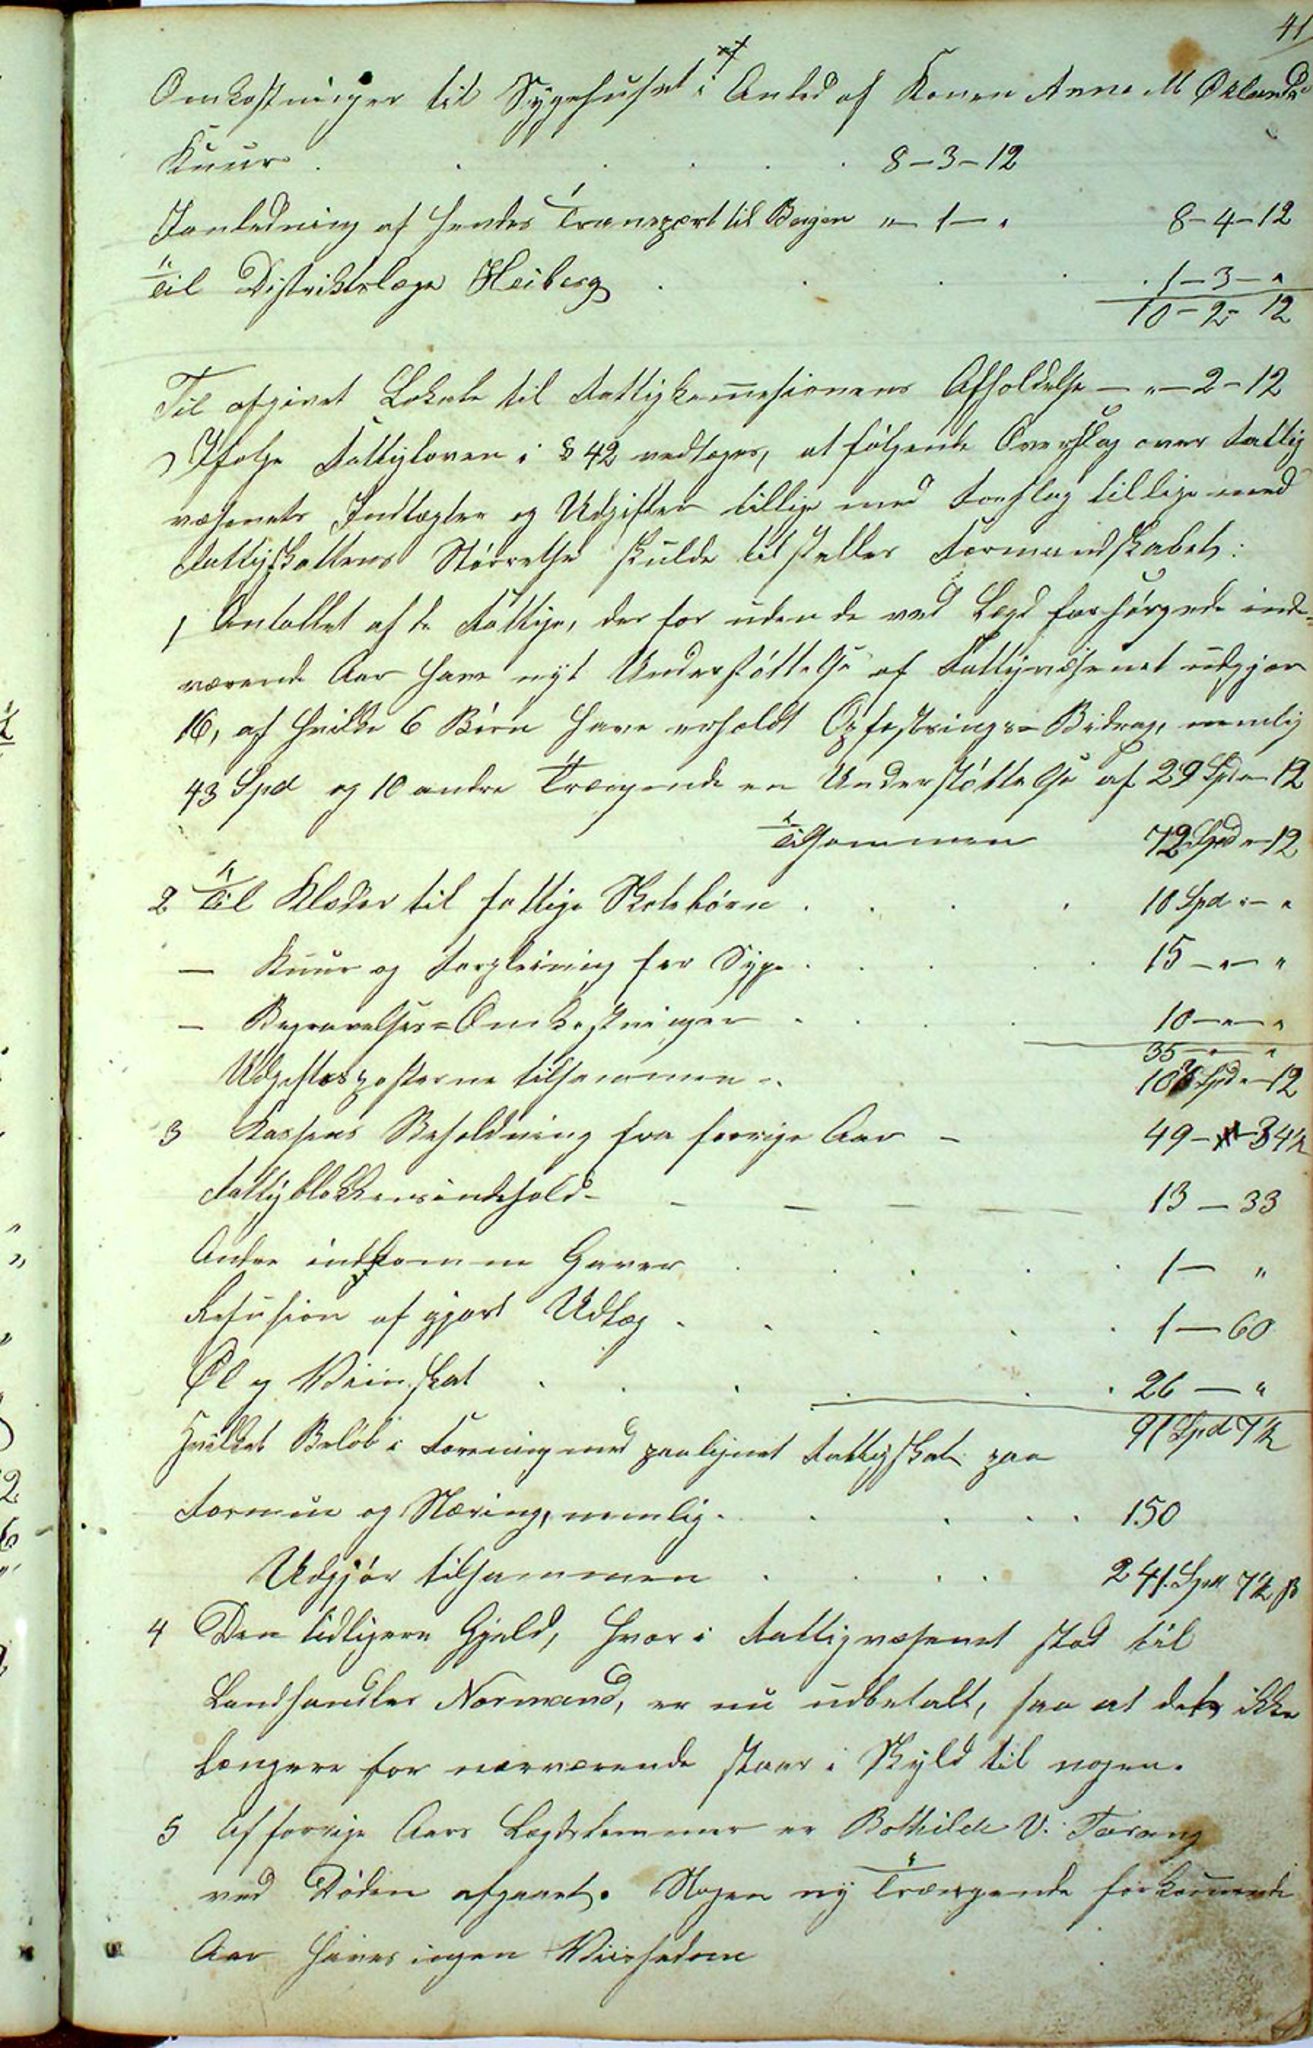 41
Omkostninger til Sygehuset i Anled af Konen Anna M Økland
Kuur . . . . . 8-3-12
Ianledning af hendes Transport til Bergen "-1-" 8-4-12
Til Distriktslæge Heiberg . . . . 1-3-"
10-2-12
Til afgivet Lokale til Fattigkommissionens Afholdelse - "-2-12
Ifølge Fattigloven i § 42 vedtoges, at følgende Overslag over Fattig
væsenets Indtægter og Udgifter tillige med Forslag tillige med
Fattigskattens Størrelse skulde tilstilles Formandskabet:
1 Antallet af de Fattige, der for uden de ved Lægd forsørgede inde=
værende Aar have nyt Understøttelse af Fattigvæsenet udgjør
16, af hvilke 6 Børn have erholdt Opfostrings=Bidrag, nemlig
43 Spd og 10 andre Trængende en Understøttelse af 29 Spd " 12
Tilsammen 72 Spd " 12
2 Til Klæder til fattige Skolebørn . . . 10 Spd "- "
- Kuur og Forpleining for Syge . . . . 15 - "- "
- Begravelses=Omkostninger . . . 10 - "- "
35 - " "
Udgiftsposterne tilsammen . 107 Spd " 12
3 Kassens Beholdning fra forrige Aar - 49 - 34½
Fattigblokkens indehold - - - - - 13 - 33
Andre indkomne Gaver . . . . . 1 - "
Refusion af gjort Udlæg . . . . . 1 - 60
Øl og Viinskat . . . . . . 26 - "
91 Spd 7½
Hvilket Beløb i Forening med paalignet Fattigskat paa
Formue og Næring, nemlig . . . . . 150
Udgjør tilsammen . . . . 241 Spd 7½ ß
4 Den tidligere Gjeld, hvori Fattigvæsenet stod til
Landhandler Normand, er nu udbetalt, saa at det ikke
længere for nærværende staar i Skyld til nogen.
5 Af forrige Aars Lægdslemmer er Bothilde V. Tarang
ved Døden afgaaet. Nogen ny Trængende forkommende
Aar haves ingen Viishedom